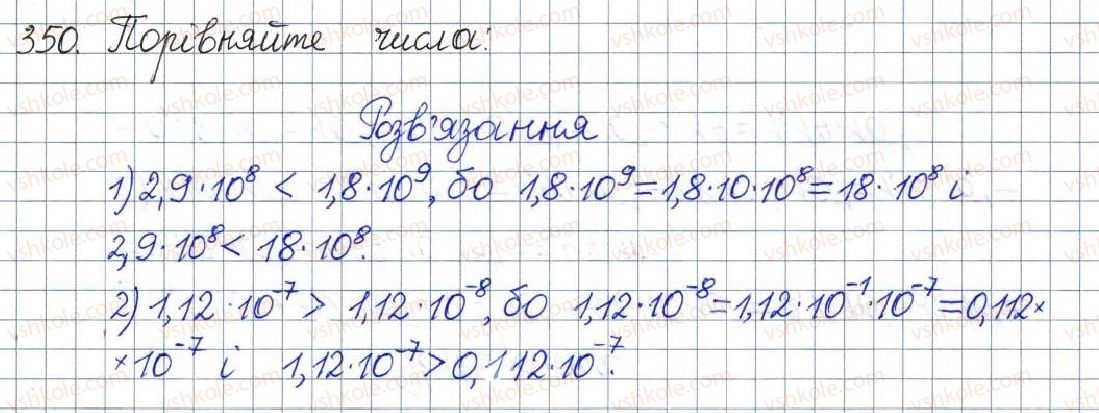 350. Порівняйте числа:
Розв'язання
1) 2,9·10⁸ < 1,8·10⁹, бо 1,8·10⁹=1,8·10·10⁸=18·10⁸ і
2,9·10⁸< 18·10⁸.
2) 1,12·10⁻⁷ > 1,12·10⁻⁸, бо 1,12·10⁻⁸=1,12·10⁻¹·10⁻⁷=0,112×
×10⁻⁷ і 1,12·10⁻⁷>0,112·10⁻⁷.